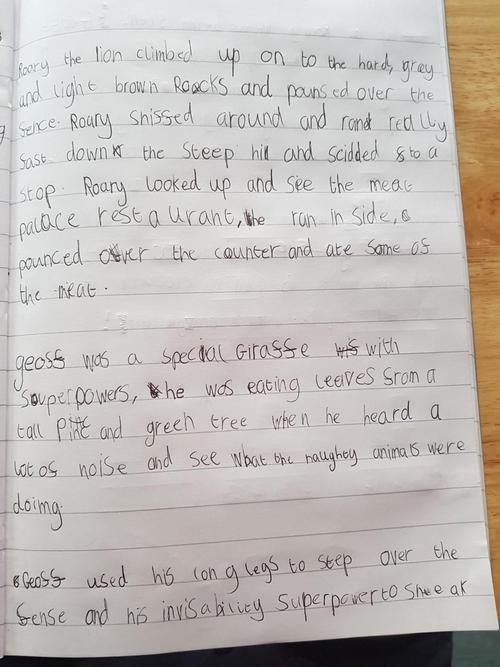 Roary the lion climbed up on to the hard, grey
and light brown Roacks and pounsed over the
fence. Roary snissed around and rand really
fast down the steep hill and scidded to a
stop. Roary looked up and see the meat
palace restaurant, he ran in side,
pounced over the counter and ate some of
the meat.
geoff was a special Giraffe with
superpowers, he was eating leeves from a
tall pine and green tree when he heard a
lot of noise and see what the naughty animals were
doing.
Geoff used his long legs to step over the
fense and his invisability superpower to sneeak